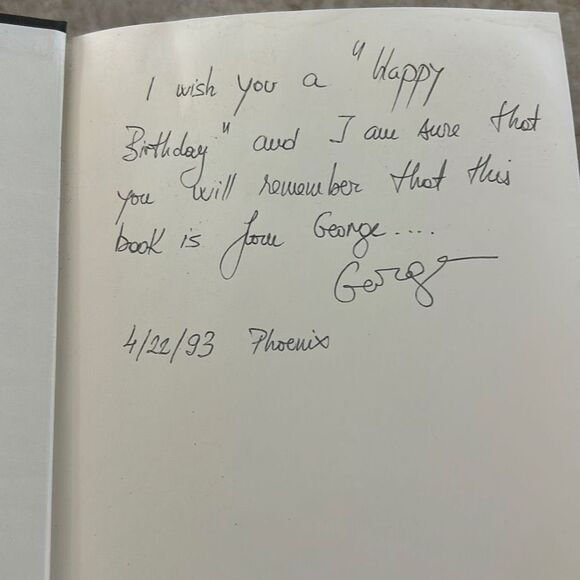 I wish you a "Happy
Birthday" and I am sure that
you will remember that this
book is from George....
George
4/22/93 Phoenix